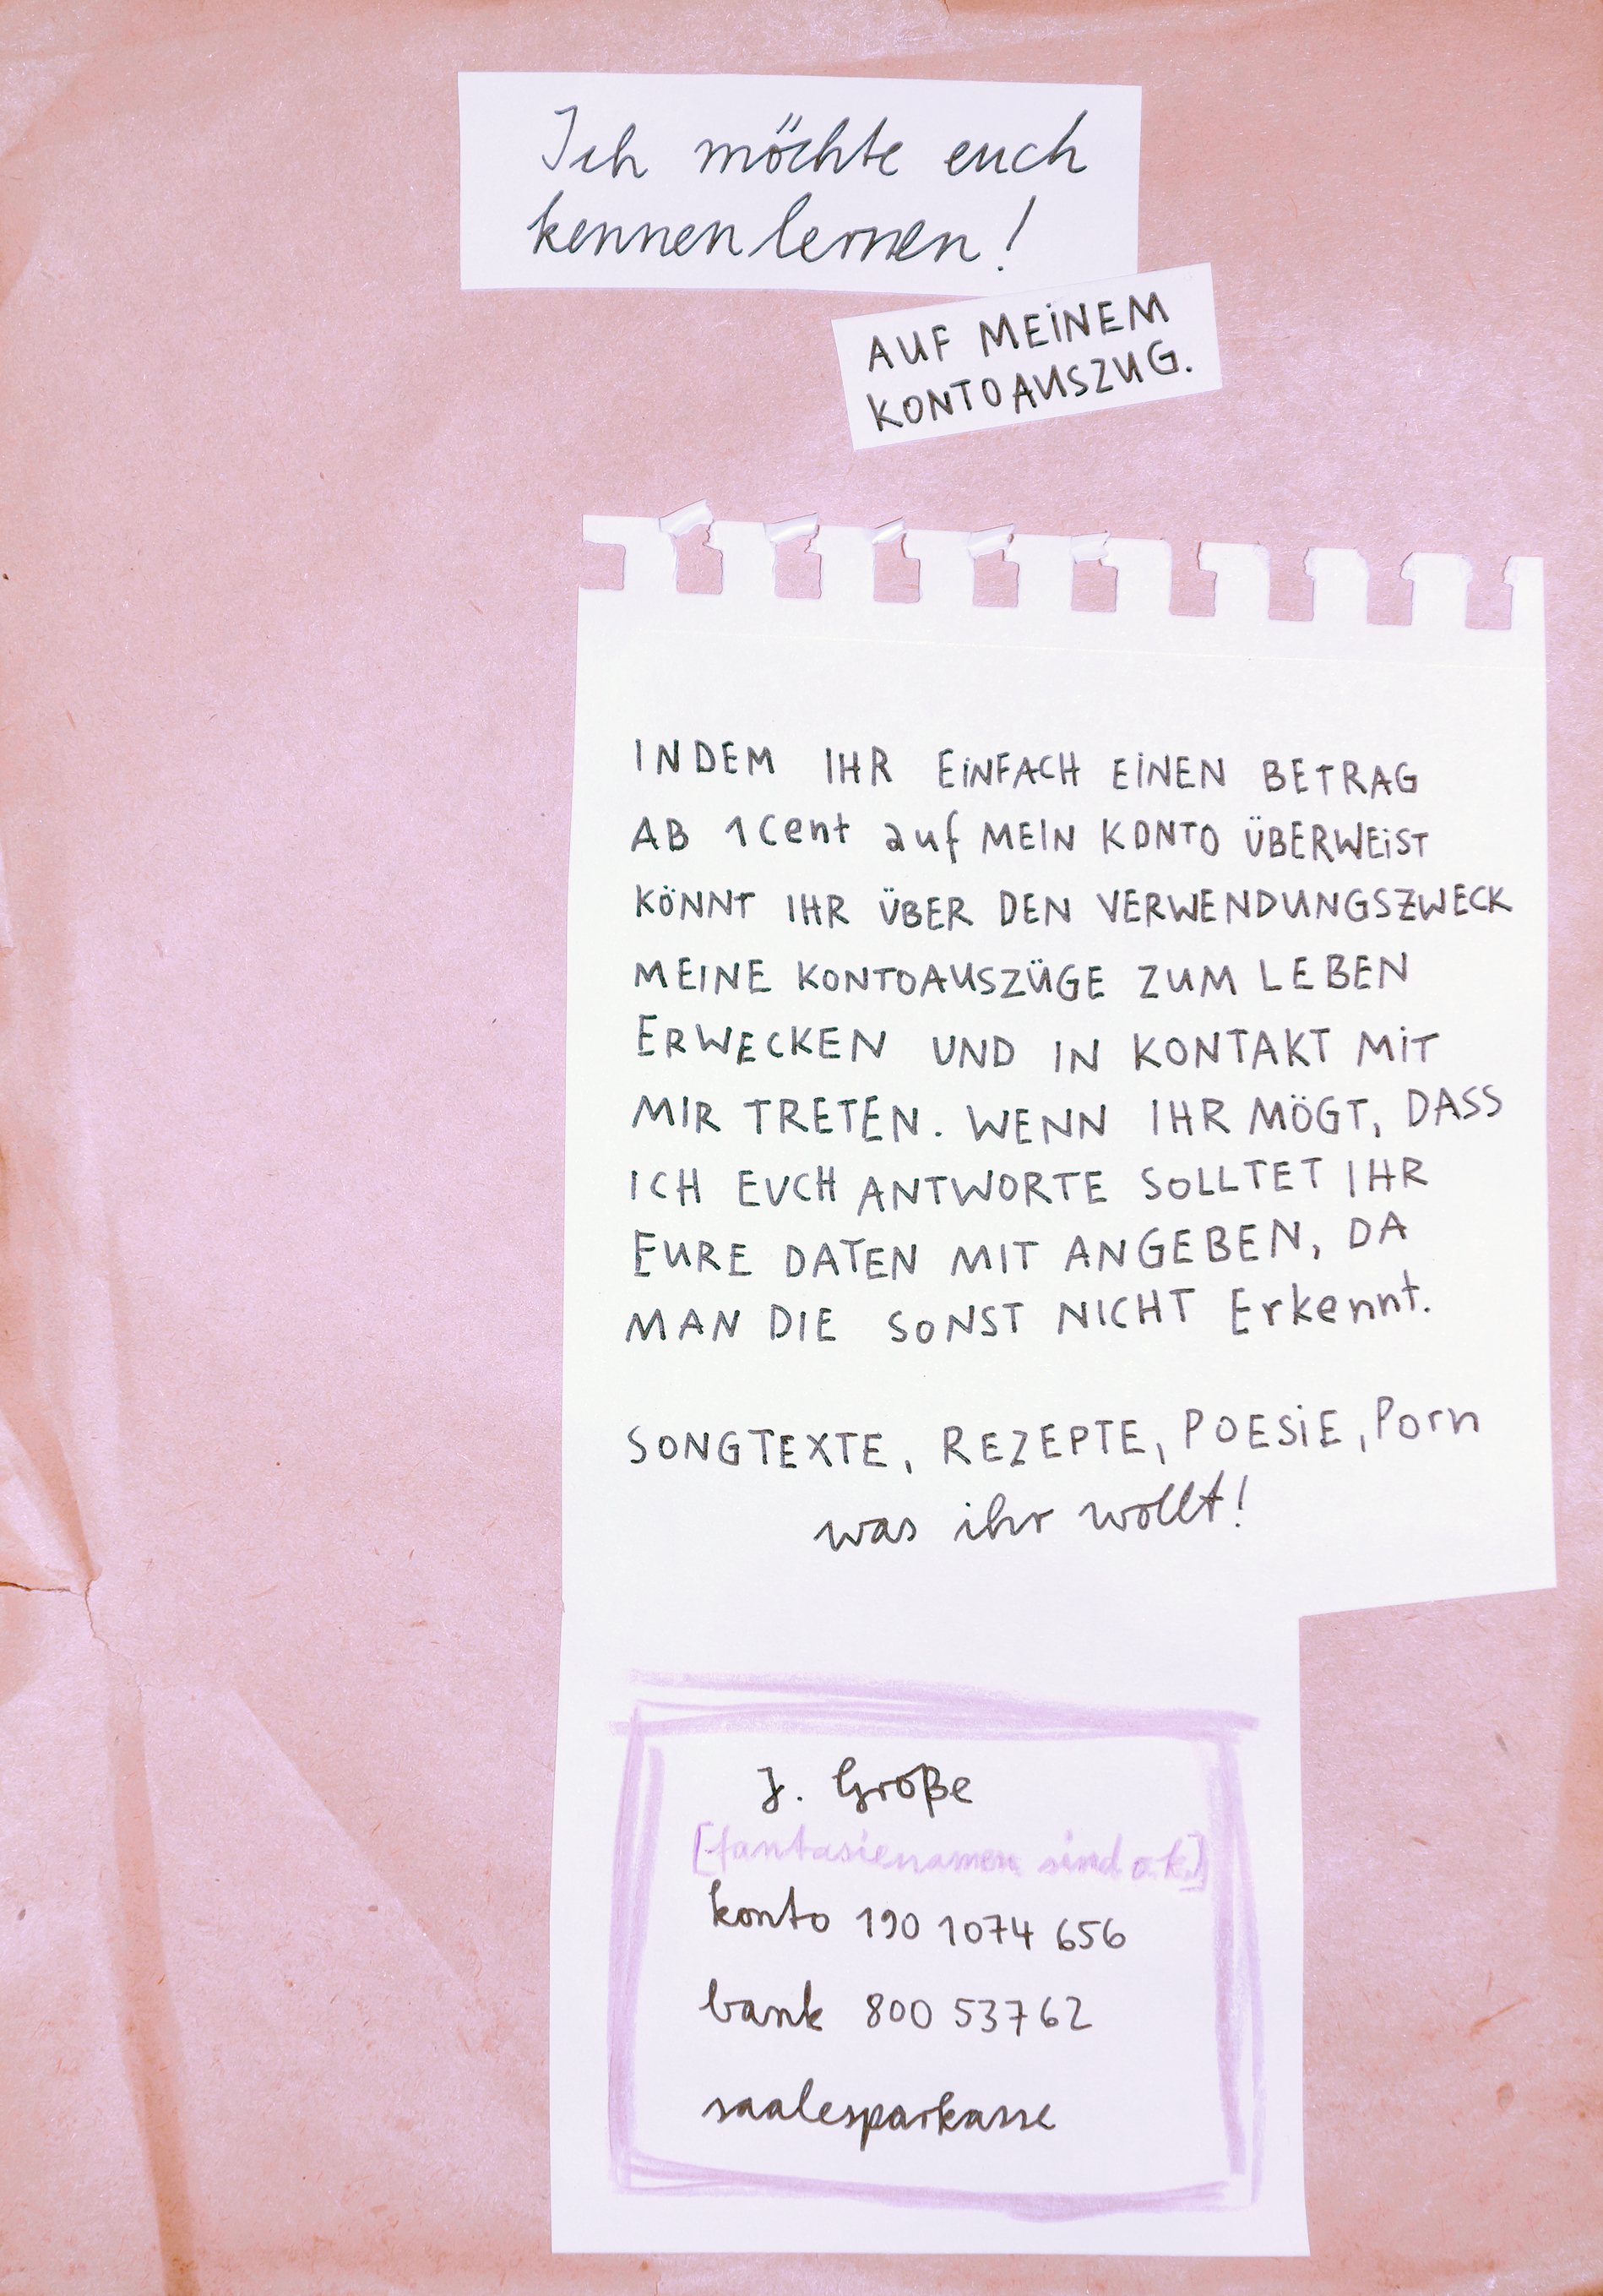 Ich möchte euch
kennenlernen!
AUF MEINEM
KONTOAUSZUG.
INDEM IHR EINFACH EINEN BETRAG
AB 1Cent auf MEIN KONTO ÜBERWEIST
KÖNNT IHR ÜBER DEN VERWENDUNGSZWECK
MEINE KONTOAUSZÜGE ZUM LEBEN
ERWECKEN UND IN KONTAKT MIT
MIR TRETEN. WENN IHR MÖGT, DASS
ICH EUCH ANTWORTE SOLLTET IHR
EURE DATEN MIT ANGEBEN, DA
MAN DIE SONST NICHT Erkennt.
SONGTEXTE, REZEPTE, POESIE, Porn
was ihr wollt!
J. Große
[fantasienamen sind o.k.]
konto 190 1074 656
bank 800 53762
saalesparkasse